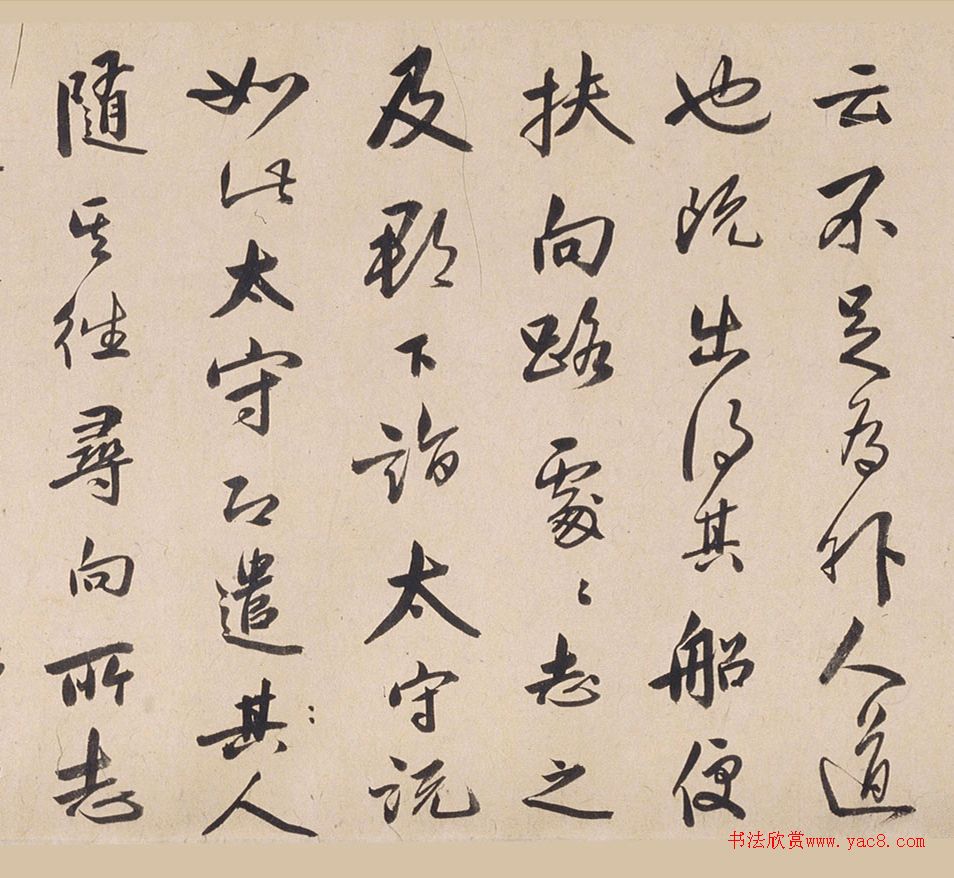 云不足為外人道
也既出得其船便
扶向路處〻志之
及郡下詣太守說
如此太守即遣其人
隨其往尋向所志
书法欣赏www.yac8.com